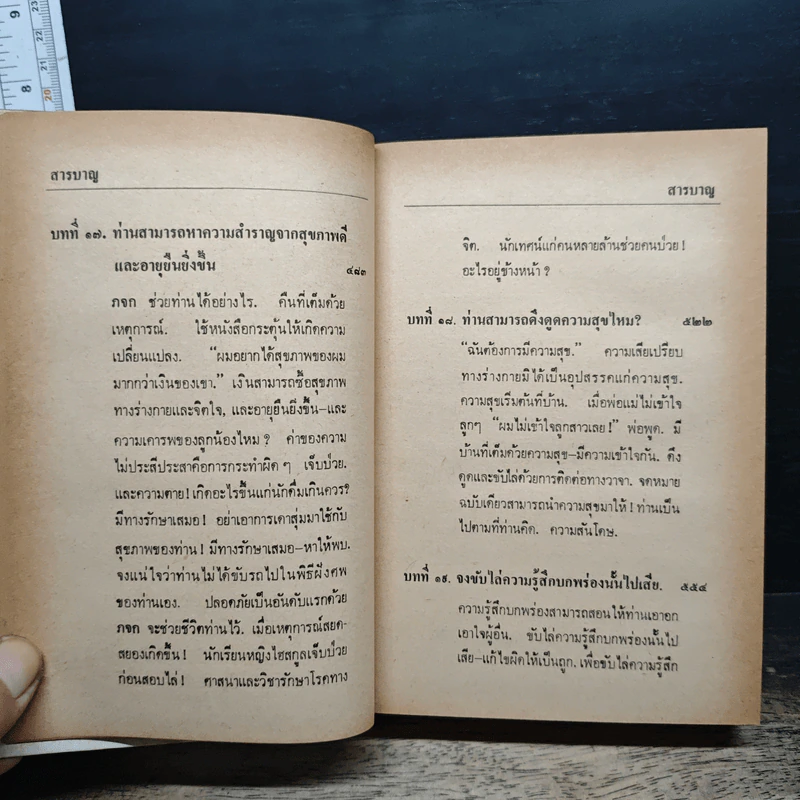 9
8
23
22
21
20
สารบาญ
บทที่ ๑๗. ท่านสามารถหาความสำราญจากสุขภาพดี
และอายุยืนยิ่งขึ้น ๔๘๓
ภจก ช่วยท่านได้อย่างไร. คืนที่เต็มด้วย
เหตุการณ์. ใช้หนังสือกระตุ้นให้เกิดความ
เปลี่ยนแปลง. “ผมอยากได้สุขภาพของผม
มากกว่าเงินของเขา.” เงินสามารถซื้อสุขภาพ
ทางร่างกายและจิตใจ, และอายุยืนยิ่งขึ้น–และ
ความเคารพของลูกน้องไหม ? ค่าของความ
ไม่ประสีประสาคือการกระทำผิด ๆ เจ็บป่วย.
และความตาย! เกิดอะไรขึ้นแก่นักดื่มเกินควร?
มีทางรักษาเสมอ! อย่าเอาการเดาสุ่มมาใช้กับ
สุขภาพของท่าน! มีทางรักษาเสมอ–หาให้พบ.
จงแน่ใจว่าท่านไม่ได้ขับรถไปในพิธีฝังศพ
ของท่านเอง. ปลอดภัยเป็นอันดับแรกด้วย
ภจก จะช่วยชีวิตท่านไว้. เมื่อเหตุการณ์สยด-
สยองเกิดขึ้น! นักเรียนหญิงไฮสกูลเจ็บป่วย
ก่อนสอบไล่! ศาสนาและวิชารักษาโรคทาง
สารบาญ
จิต. นักเทศน์แก่คนหลายล้านช่วยคนป่วย!
อะไรอยู่ข้างหน้า ?
บทที่ ๑๘. ท่านสามารถดึงดูดความสุขไหม? ๕๒๒
“ฉันต้องการมีความสุข.” ความเสียเปรียบ
ทางร่างกายมิได้เป็นอุปสรรคแก่ความสุข.
ความสุขเริ่มต้นที่บ้าน. เมื่อพ่อแม่ไม่เข้าใจ
ลูกๆ “ผมไม่เข้าใจลูกสาวเลย!” พ่อพูด. มี
บ้านที่เต็มด้วยความสุข–มีความเข้าใจกัน. ดึง
ดูดและขับไล่ด้วยการติดต่อทางวาจา. จดหมาย
ฉบับเดียวสามารถนำความสุขมาให้! ท่านเป็น
ไปตามที่ท่านคิด. ความสันโดษ.
บทที่ ๑๙. จงขับไล่ความรู้สึกบกพร่องนั้นไปเสีย. ๕๕๔
ความรู้สึกบกพร่องสามารถสอนให้ท่านเอาอก
เอาใจผู้อื่น. ขับไล่ความรู้สึกบกพร่องนั้นไป
เสีย–แก้ไขผิดให้เป็นถูก. เพื่อขับไล่ความรู้สึก